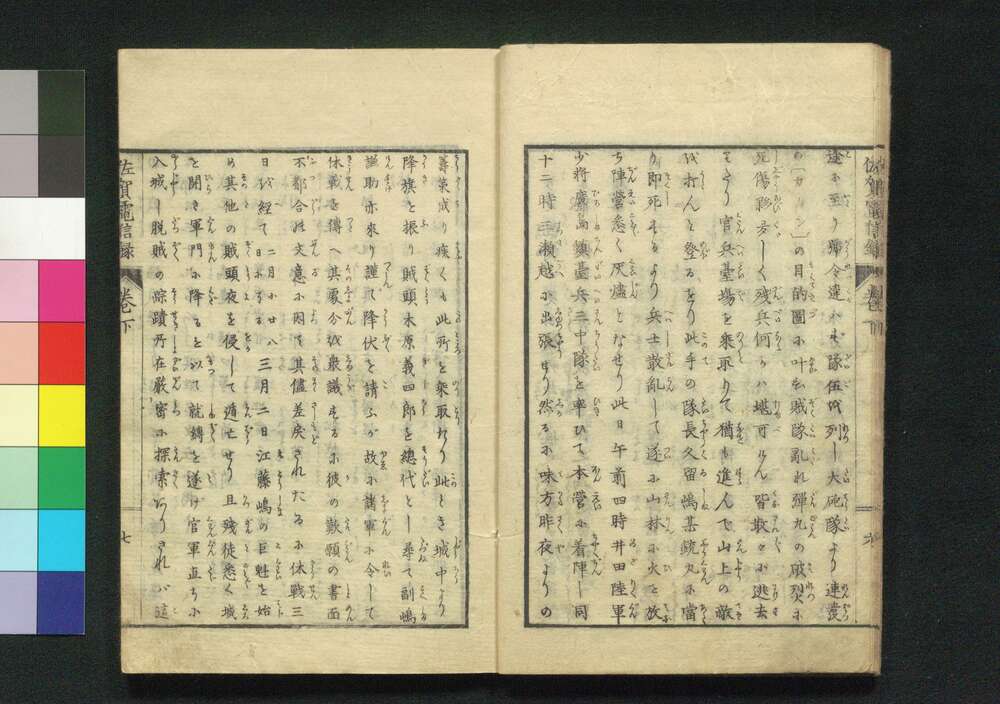 佐賀電信録 卷下
途小至り帰令違ハず隊伍を列し大砲隊より連発
の目的圖小叶を賊隊乱れ弾丸の破裂小
死傷夥多しく残兵何かハ堪可けん皆散々小逃去
てより官兵臺場を乗取りて猶も進んで山上の敵
を打んと登るをり此手の隊長久留嶋某銃丸小當
り即死するより兵士散乱して遂小山林小火を放
ち陣營悉く灰燼となせり此日午前四時井田陸軍
少将廣嶋鎮臺兵三中隊を率ひて本營小着陣し同
十二時三瀬越小出張せり然る小味方昨夜よりの
籌策成り疾くも此所を乗取れり此とき城中より
降旗を振り賊頭木原義四郎を總代とし尋て副嶋
謙助亦來り謹て降伏を請ふが故小諸軍小令して
休戰を傳へ其處分を衆議する小彼の歎願の書面
不都合牲文意小因て其儘差戻されたる小休戰三
日を経て二月小廿八三月二日江藤嶋の巨魁を始
め其他の賊頭夜を侵して遁亡せり且殘徒悉く城
を開き軍門小降るを以て就縛を遂け官軍直ち小
入城し脱賊の踪蹟所在厳密小探索ありされバ這
佐賀電信録 卷下 七